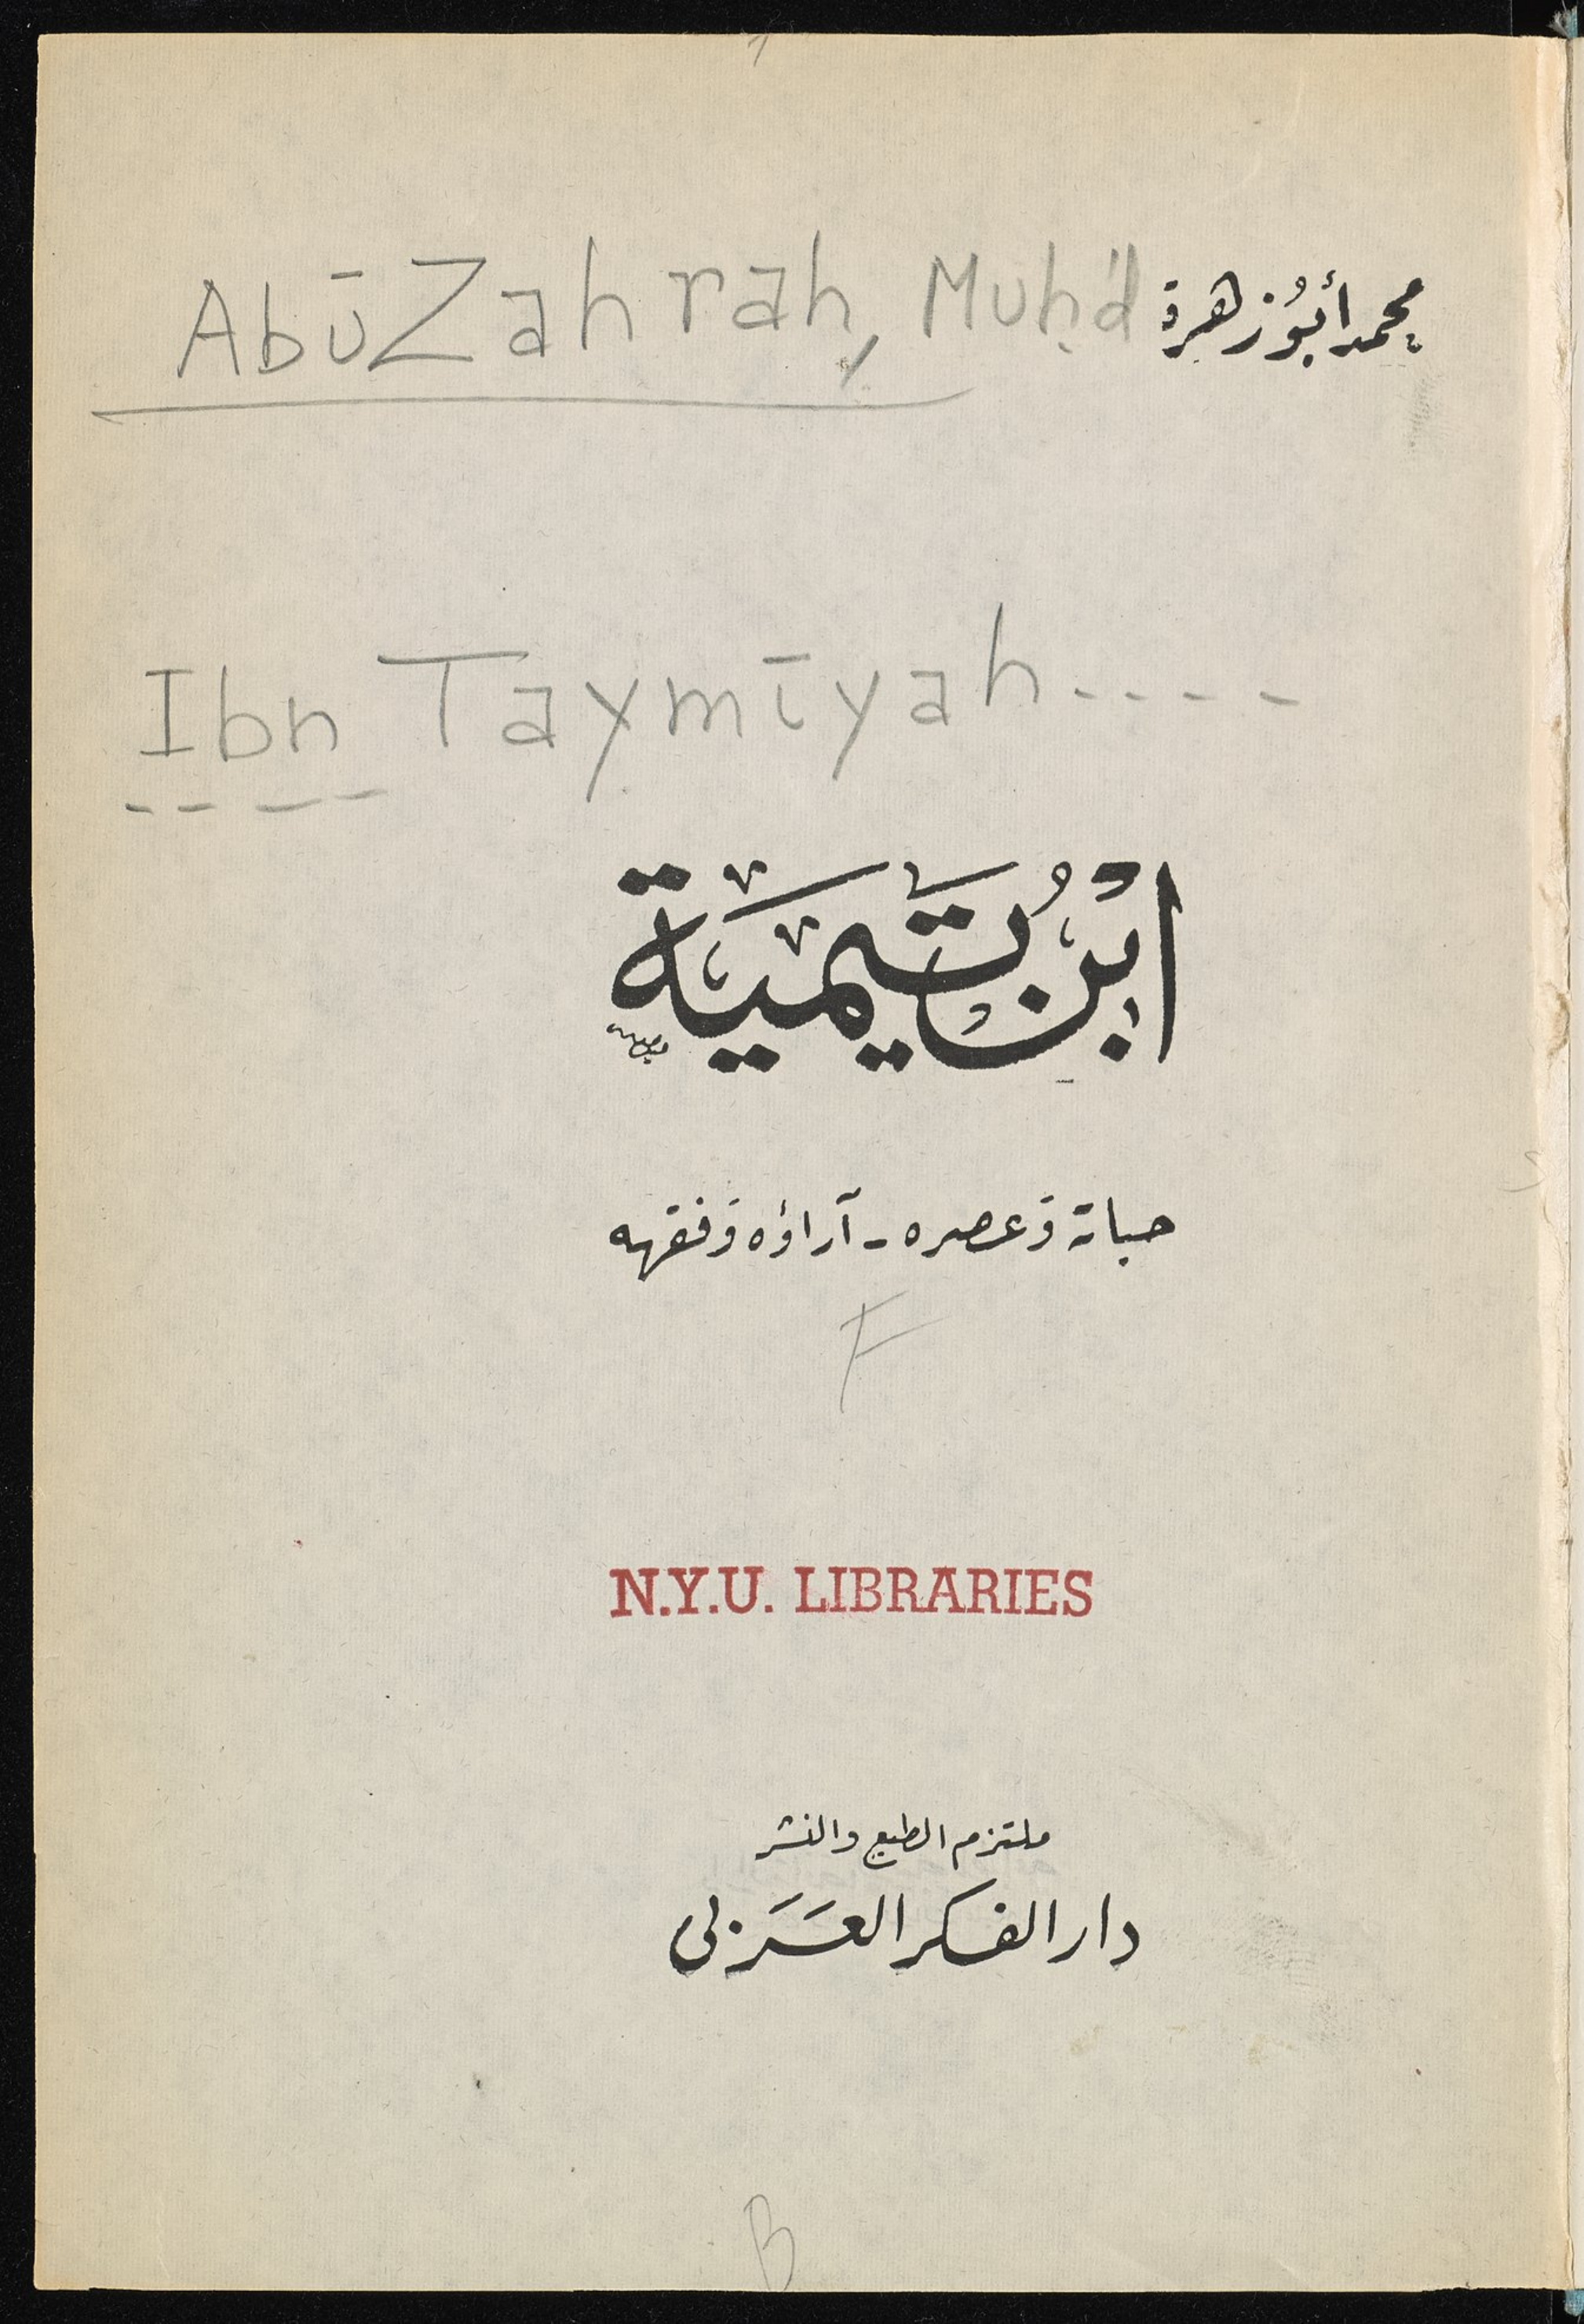 Abū Zahrah, Muḥ'd محمد أبو زهرة
Ibn Taymīyah----
ابن تيمية
حياته وعصره - آراؤه وفقهه
F
N.Y.U. LIBRARIES
ملتزم الطبع والنشر
دار الفكر العربي
B